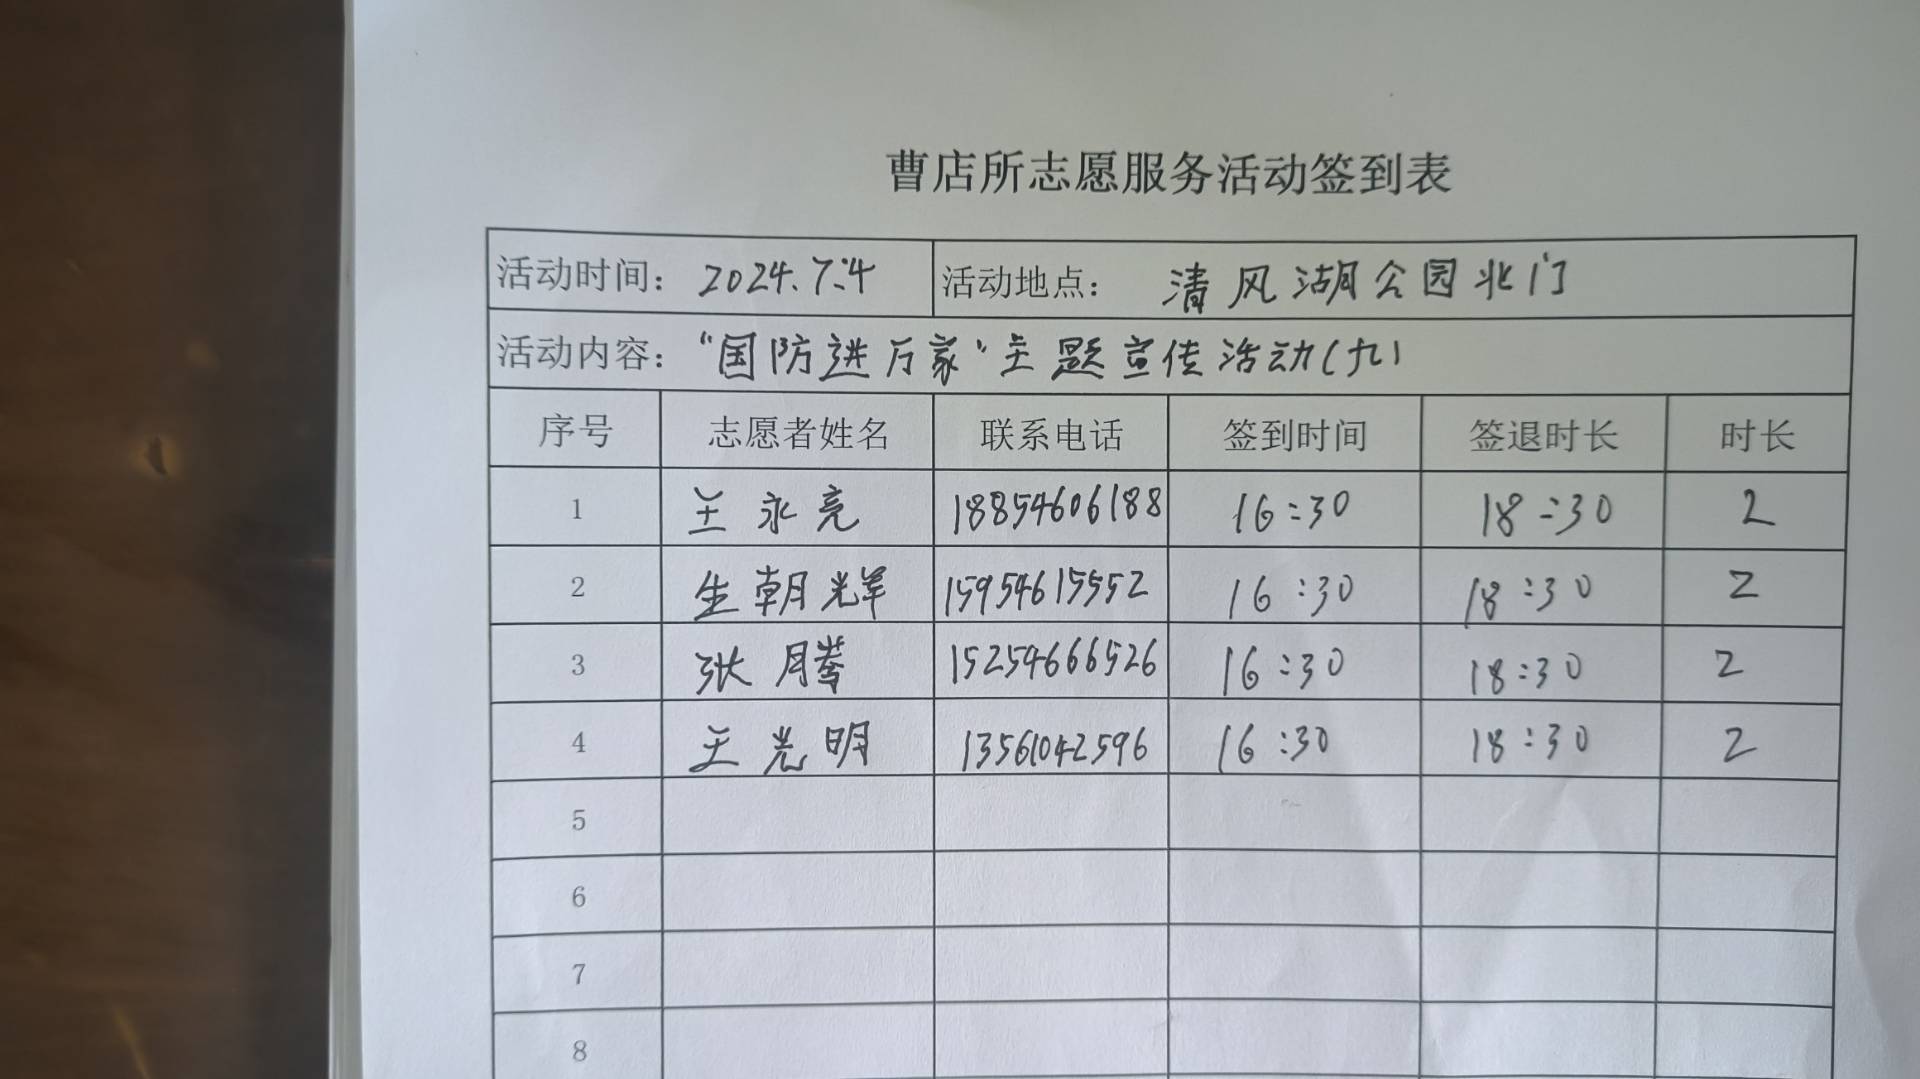 曹店所志愿服务活动签到表
活动时间：2024.7.4 活动地点：清风湖公园北门
活动内容：“国防进万家”主题宣传活动(九)
序号 志愿者姓名 联系电话 签到时间 签退时长 时长
1 王永亮 18854606188 16:30 18:30 2
2 生朝辉 15954615552 16:30 18:30 2
3 张 15254666526 16:30 18:30 2
4 王光明 13561042596 16:30 18:30 2
5
6
7
8